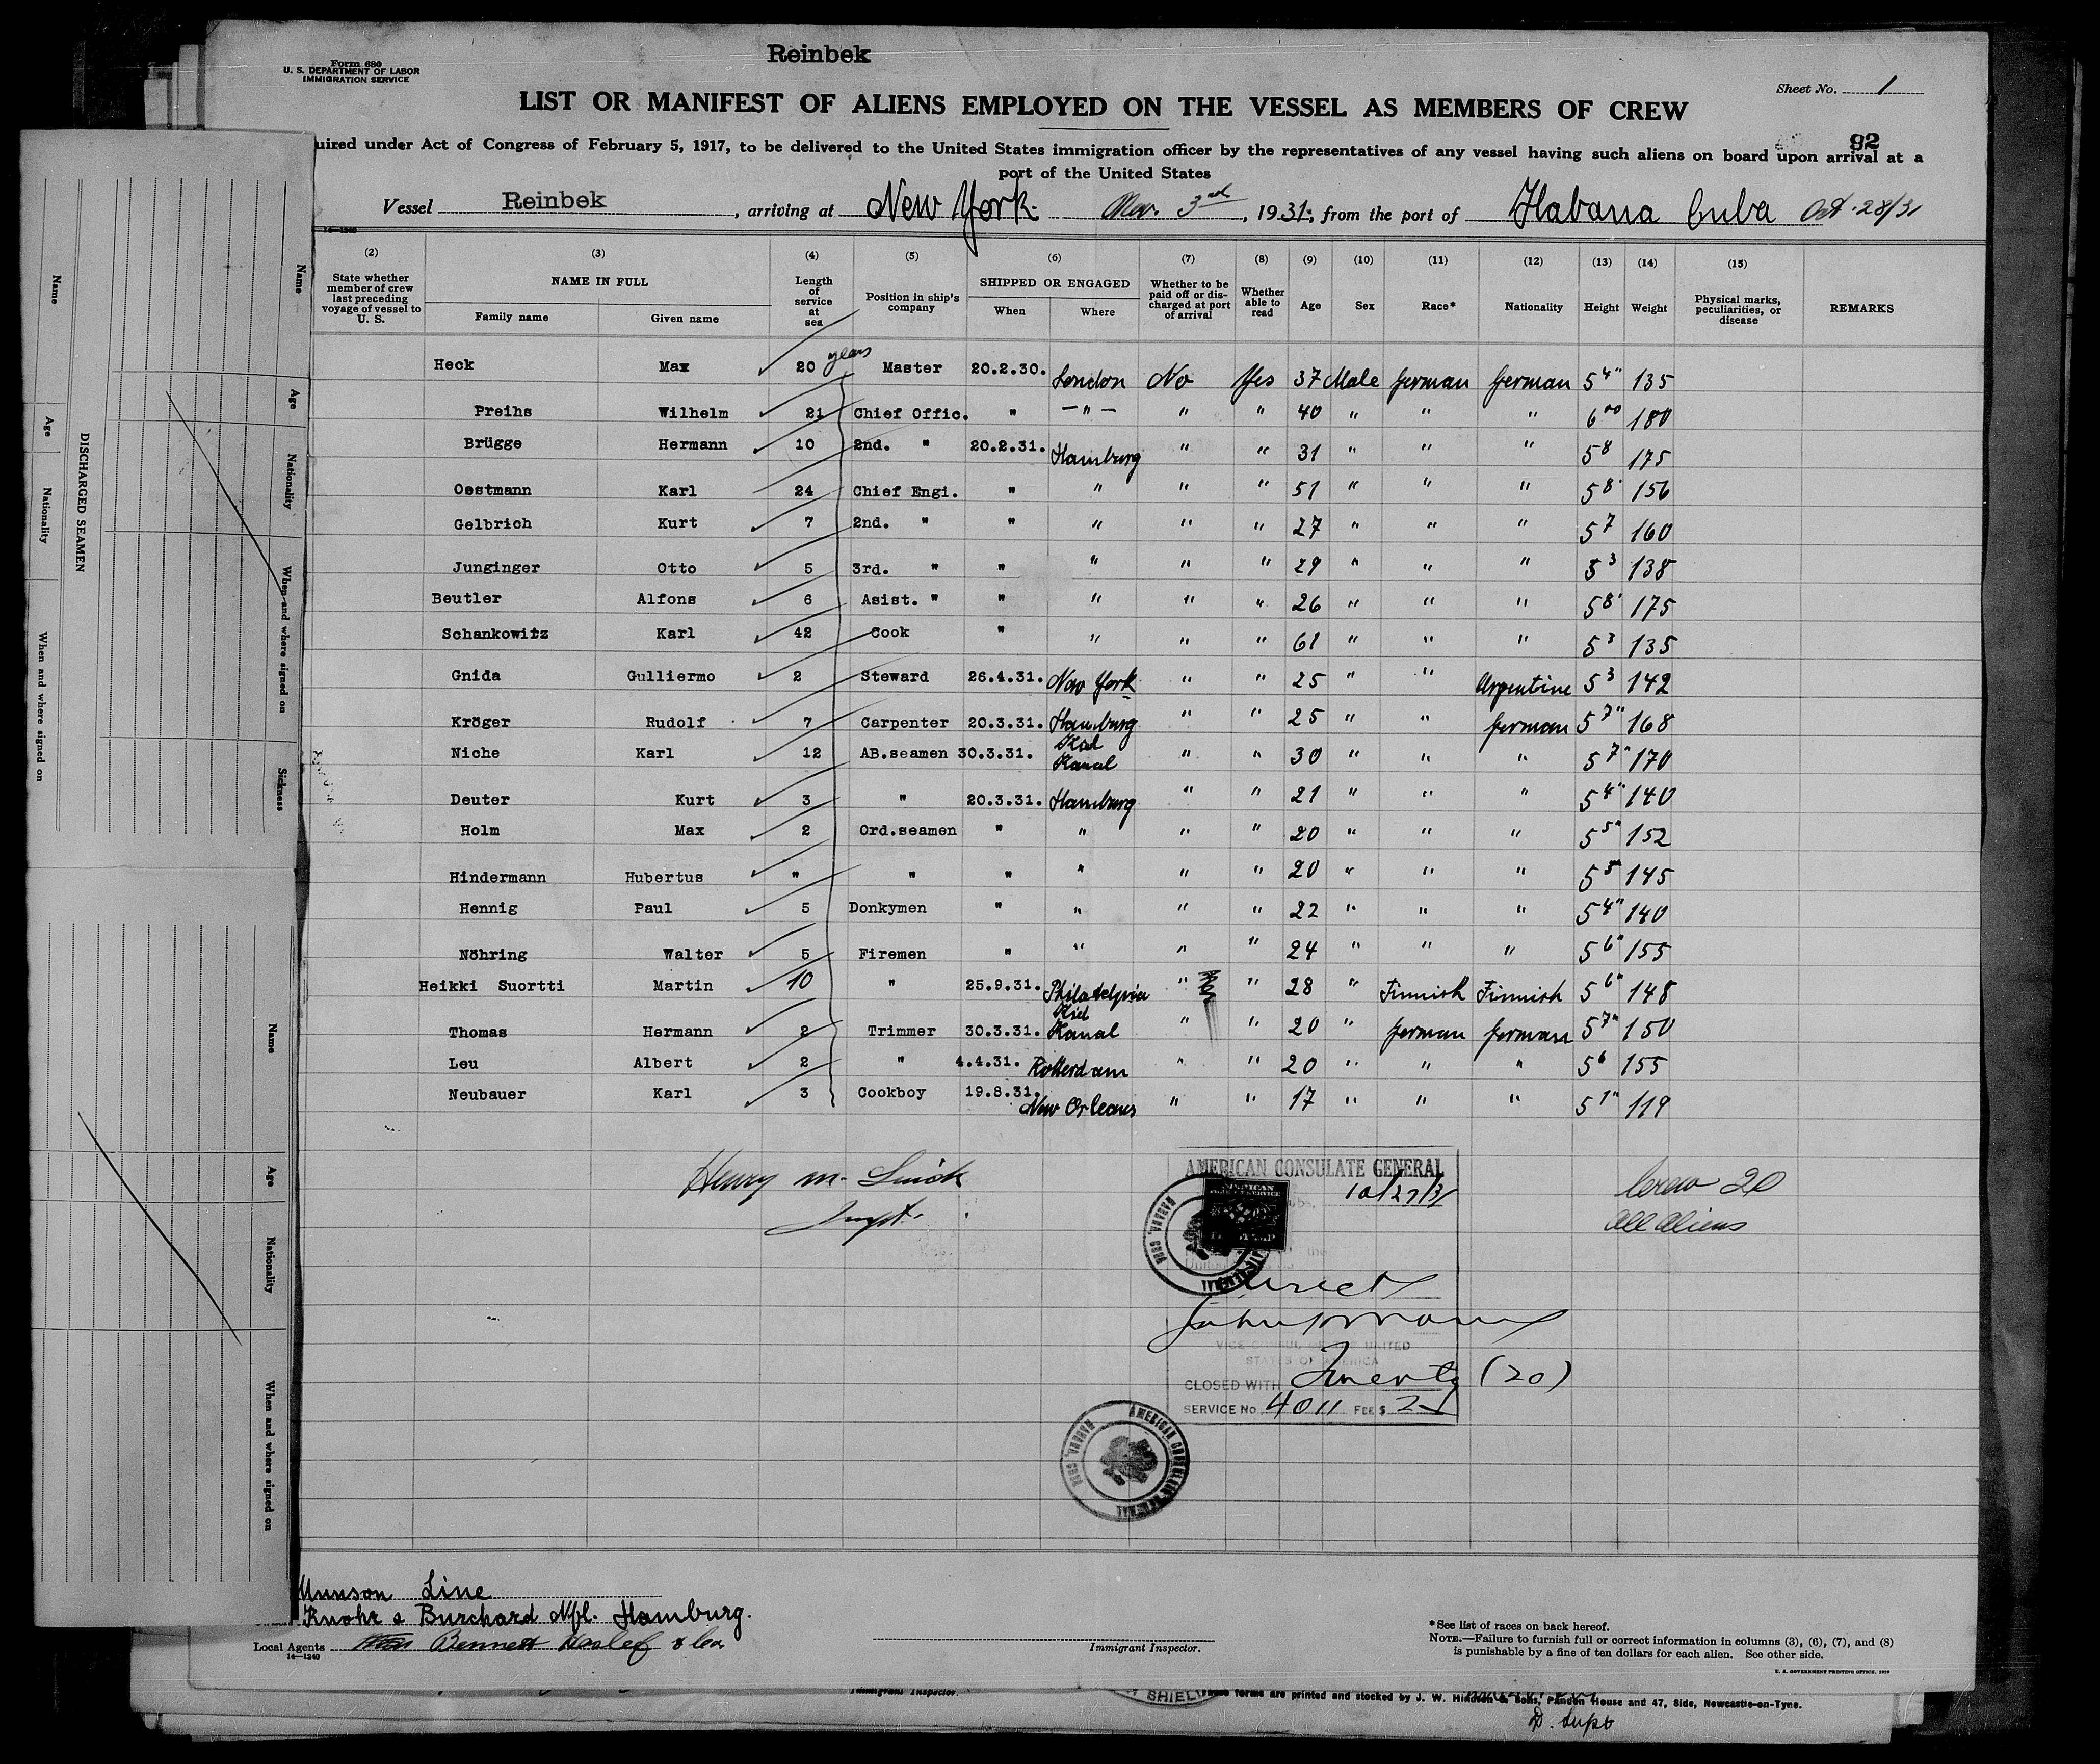 Reinbek
Form 680
U. S. DEPARTMENT OF LABOR
IMMIGRATION SERVICE
Sheet No. 1
LIST OR MANIFEST OF ALIENS EMPLOYED ON THE VESSEL AS MEMBERS OF CREW
92
uired under Act of Congress of February 5, 1917, to be delivered to the United States immigration officer by the representatives of any vessel having such aliens on board upon arrival at a
port of the United States
Vessel Reinbek, arriving at New York Nov. 3rd, 1931, from the port of Habana Cuba Oct. 28/31
14—1240
(2) (3) (4) (5) (6) (7) (8) (9) (10) (11) (12) (13) (14) (15)
State whether member of crew last preceding voyage of vessel to U. S. NAME IN FULL Family name Given name Length of service at sea Position in ship's company SHIPPED OR ENGAGED When Where Whether to be paid off or discharged at port of arrival Whether able to read Age Sex Race* Nationality Height Weight Physical marks, peculiarities, or disease REMARKS
Heck Max 20 years Master 20.2.30. London No Yes 37 Male German German 5 4" 135
Preihs Wilhelm 21 Chief Offic. " —"— " " 40 " " " 6 00 180
Brügge Hermann 10 2nd. " 20.2.31. Hamburg " " 31 " " " 5 8 175
Oestmann Karl 24 Chief Engi. " " " " 51 " " " 5 8 156
Gelbrich Kurt 7 2nd. " " " " " 27 " " " 5 7 160
Junginger Otto 5 3rd. " " " " " 29 " " " 5 3 138
Beutler Alfons 6 Asist. " " " " " 26 " " " 5 8 175
Schankowitz Karl 42 Cook " " " " 61 " " " 5 3 135
Gnida Gulliermo 2 Steward 26.4.31. New York " " 25 " " Argentine 5 3 142
Kröger Rudolf 7 Carpenter 20.3.31. Hamburg " " 25 " " German 5 7" 168
Niche Karl 12 AB.seamen 30.3.31. Kiel Kanal " " 30 " " " 5 7" 170
Deuter Kurt 3 " 20.3.31. Hamburg " " 21 " " " 5 4" 140
Holm Max 2 Ord.seamen " " " " 20 " " " 5 5" 152
Hindermann Hubertus " " " " " " 20 " " " 5 5" 145
Hennig Paul 5 Donkymen " " " " 22 " " " 5 4" 140
Nöhring Walter 5 Firemen " " " " 24 " " " 5 6" 155
Heikki Suortti Martin 10 " 25.9.31. Philadelphia " " 28 " Finnish Finnish 5 6" 148
Thomas Hermann 2 Trimmer 30.3.31. Kiel Kanal " " 20 " German German 5 7" 150
Leu Albert 2 " 4.4.31. Rotterdam " " 20 " " " 5 6 155
Neubauer Karl 3 Cookboy 19.8.31. New Orleans " " 17 " " " 5 1" 119
Henry M.
AMERICAN CONSULATE GENERAL
10/27/31
Crew 20
All Aliens
HABANA, CUBA
Direct
VICE CONSUL OF THE UNITED
STATES OF AMERICA
CLOSED WITH Twenty (20)
SERVICE No. 4011 FEE $
AMERICAN CONSULATE GENERAL HABANA, CUBA
Munson Line
Knohr & Burchard Nfl. Hamburg.
Local Agents Bennett & Co.
14—1240
Immigrant Inspector.
*See list of races on back hereof.
NOTE.—Failure to furnish full or correct information in columns (3), (6), (7), and (8)
is punishable by a fine of ten dollars for each alien. See other side.
U. S. GOVERNMENT PRINTING OFFICE. 1929
Immigrant Inspector.
SHIELD
These forms are printed and stocked by J. W. Hindson & Sons, Pandon House and 47, Side, Newcastle-on-Tyne.
DISCHARGED SEAMEN
Name Age Nationality When and where signed on
Name Age Nationality When and where signed on Sickness
Name Age Nationality When and where signed on